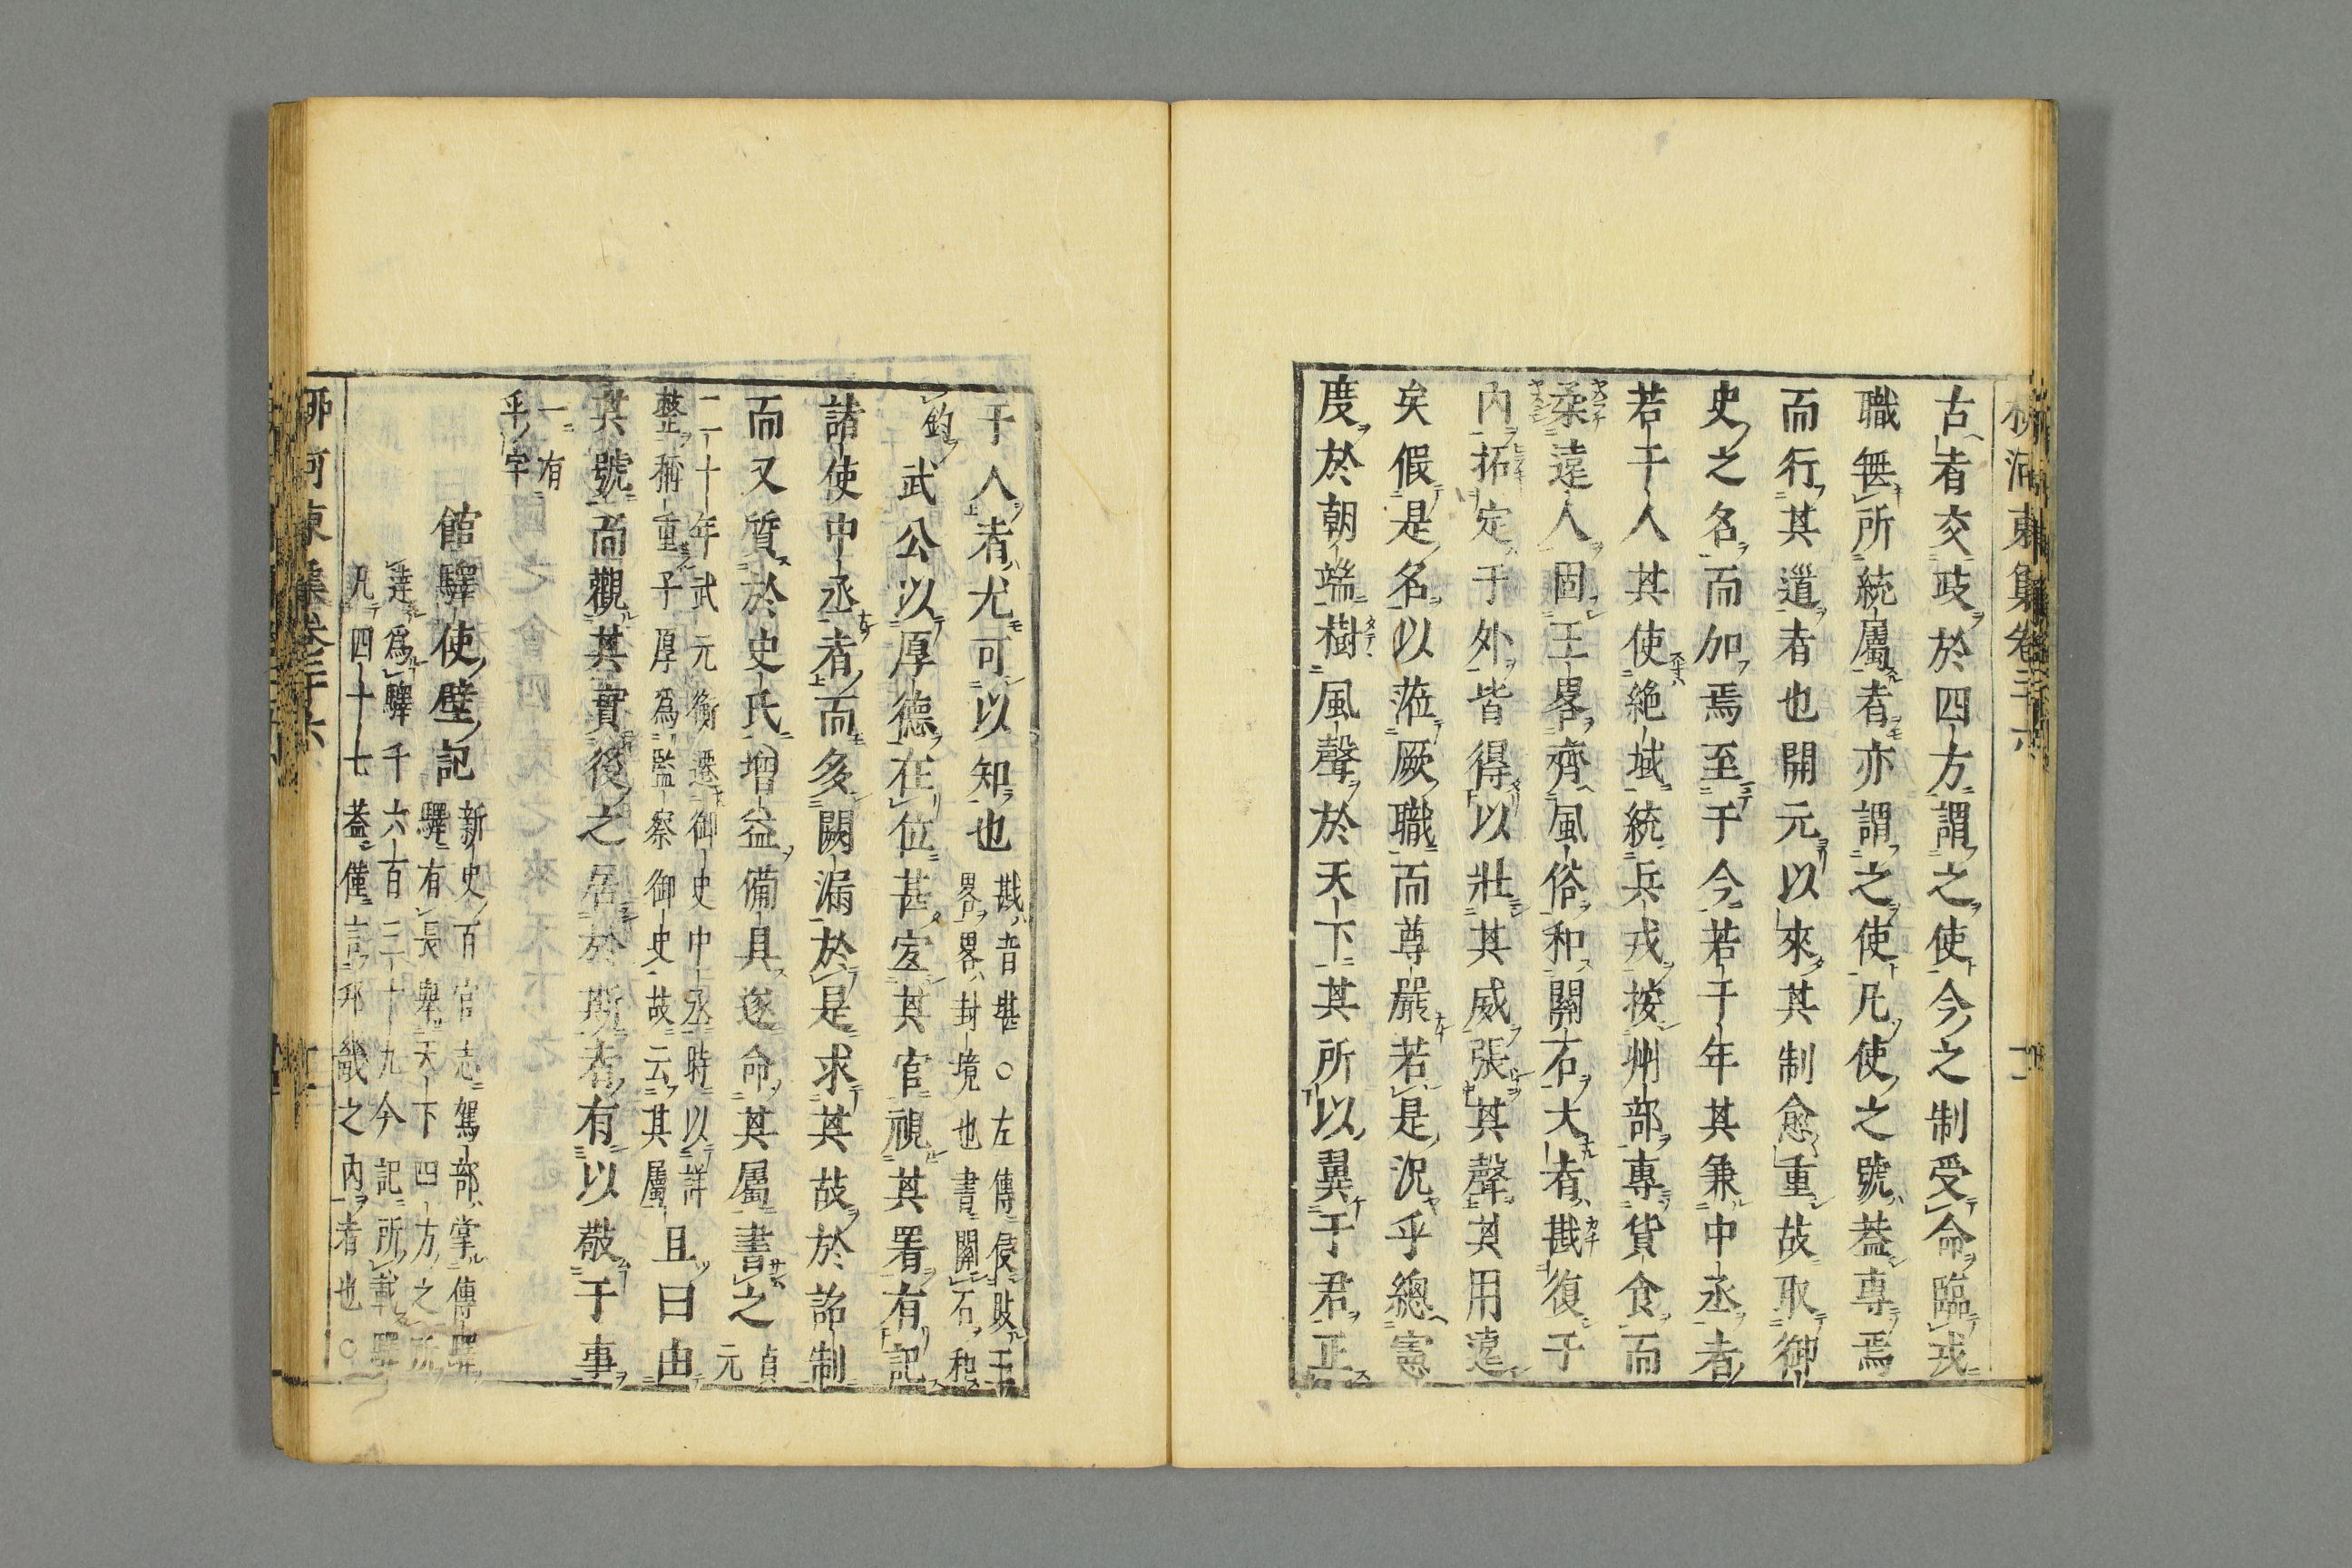 柳河東集卷二十六
古者交政於四方謂之使今之制受命臨戎
職無所統屬者亦謂之使凡使之號葢專焉
而行其道者也開元以來其制愈重故取御
史之名而加焉至于今若干年其兼中丞者
若干人其使絶域統兵戎按州部專貨食而
柔遠人固王畧齊風俗和關石大者戡復于
內拓定于外皆得以壯其威張其聲其用遠
矣假是名以蒞厥職而尊嚴若是況乎總憲
度於朝端樹風聲於天下其所以翼于君正
于人者尤可以知也戡音堪○左傳侵敗王
畧畧封境也書關石和
鈞武公以厚德在位甚宜其官視其署有記
諸使中丞者而多闕漏於是求其故於詔制
而又質於史氏增益備具遂命其屬書之貞
元
二十年武元衡遷御史中丞時以詳
整稱重子厚爲監察御史故云其屬且曰由
其號而觀其實後之居於斯者有以敬于事
一有
乎字
館驛使壁記新史百官志駕部掌傳驛
驛有長舉天下四方之所
達爲驛千六百三十九今記所載驛
凡四十七葢僅言邦畿之內者也○
柳河東集卷二十六